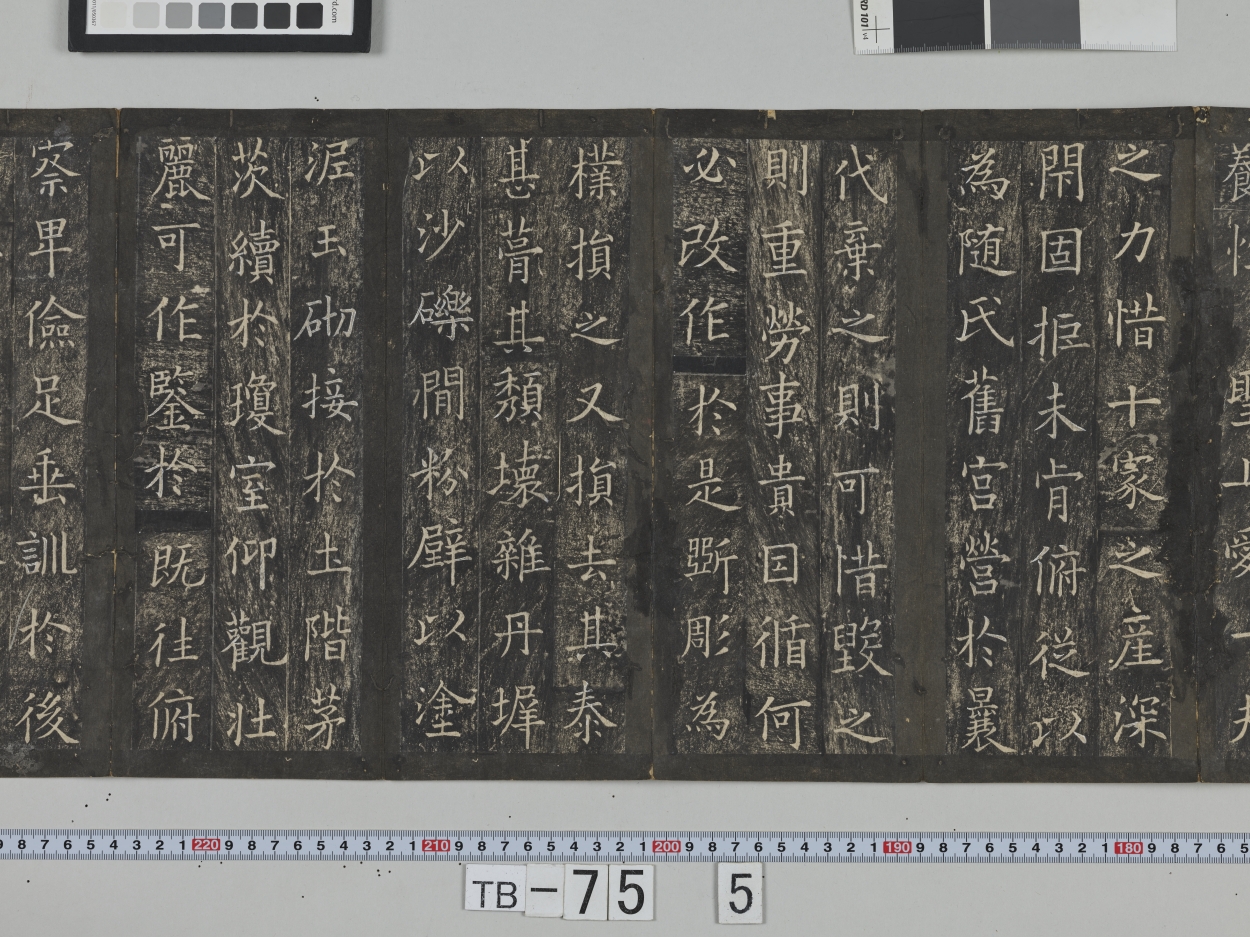 養性 聖上愛一夫
之力惜十家之産深
閇固拒未肯俯從以
為随氏舊宮營於曩
代棄之則可惜毀之
則重勞事貴因循何
必改作於是斲彫為
樸損之又損去其泰
甚葺其頹壞雜丹墀
以沙礫間粉壁以塗
泥玉砌接於土階茅
茨續於瓊室仰觀壯
麗可作鑒於既往俯
察卑儉足垂訓於後
TB-75 5